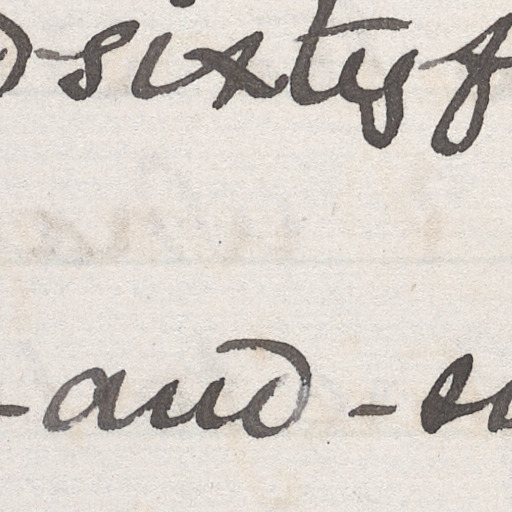 sixty f
-and-